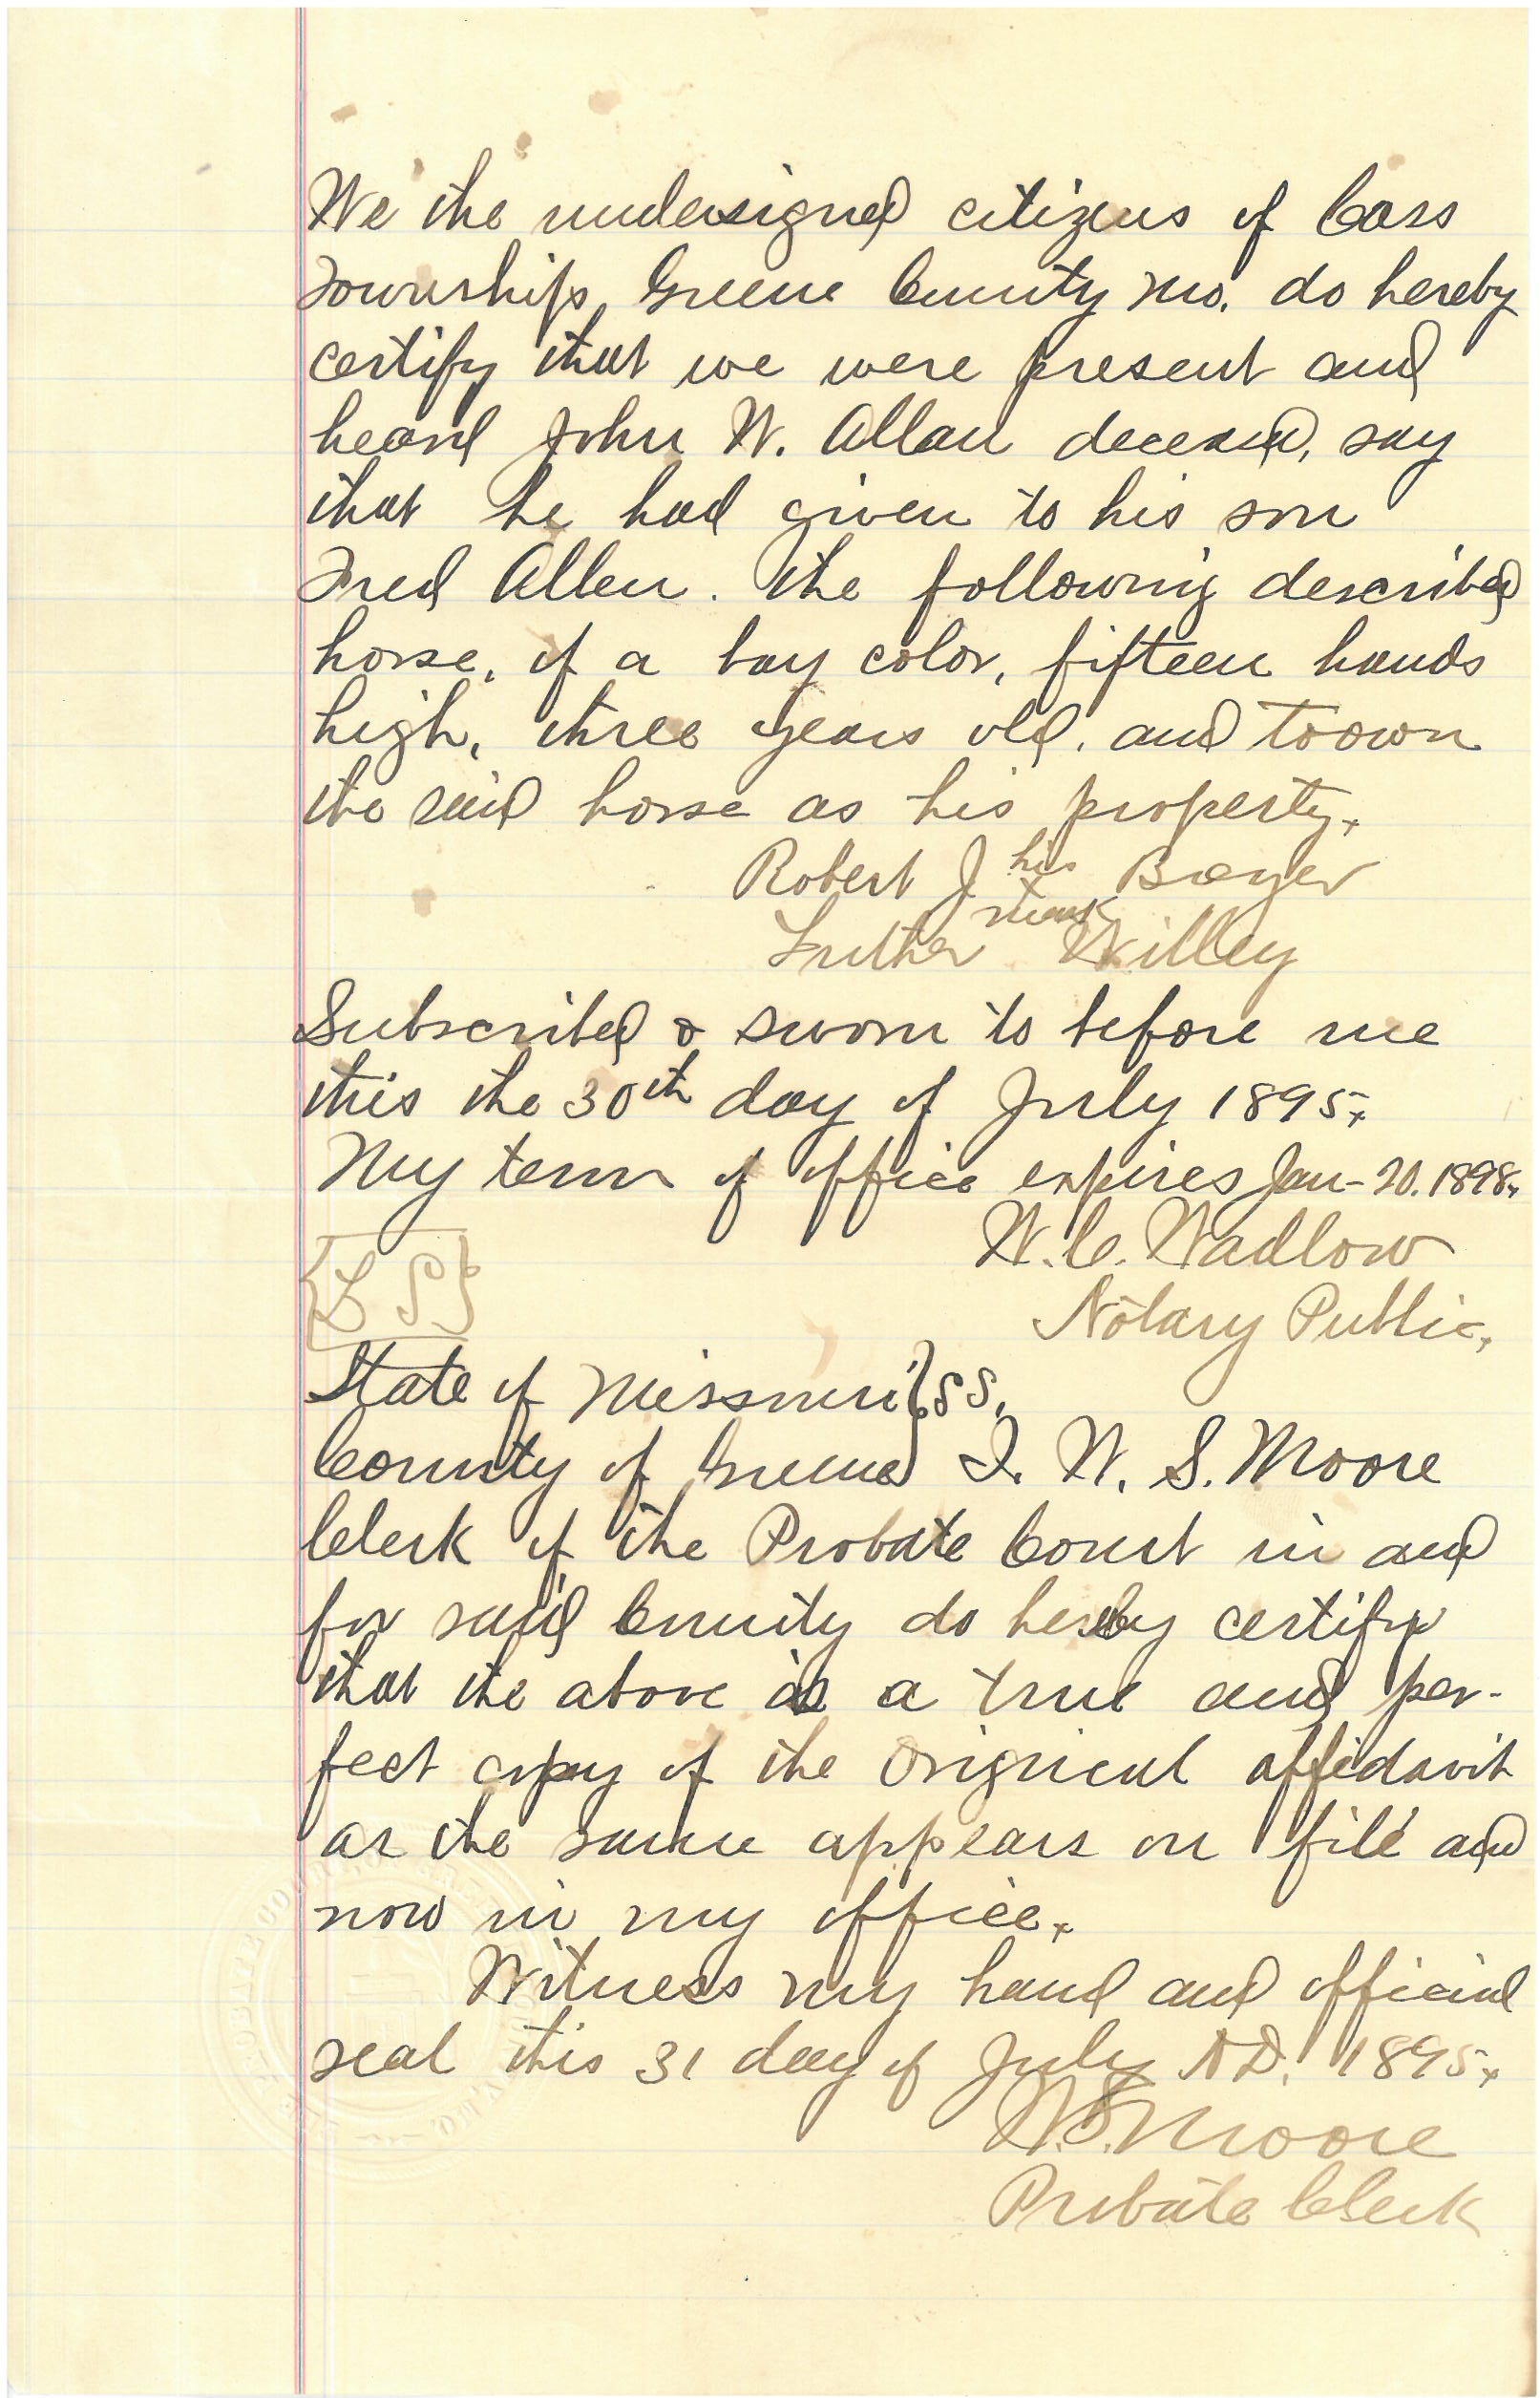 We the undersigned citizens of Cass
Township, Greene County Mo. do hereby
certify that we were present and
heard John W. Allan deceased, say
that he had given to his son
Fred Allen. the following described
horse, of a bay color, fifteen hands
high, three years old. and to own
the said horse as his property.
Robert J his Boyer
x mark
Luther Willey
Subscribed & sworn to before me
this the 30th day of July 1895.
My term of office expires Jan-20. 1898.
W. C. Wadlow
{L S}
Notary Public,
State of Missouri } SS.
County of Greene } I. W. S. Moore
Clerk of the Probate Court in and
for said County do hereby certify
that the above is a true and per-
fect copy of the original affidavit
as the same appears on file and
now in my office.
Witness my hand and official
seal this 31 day of July A.D. 1895.
W.S. Moore
Probate Clerk